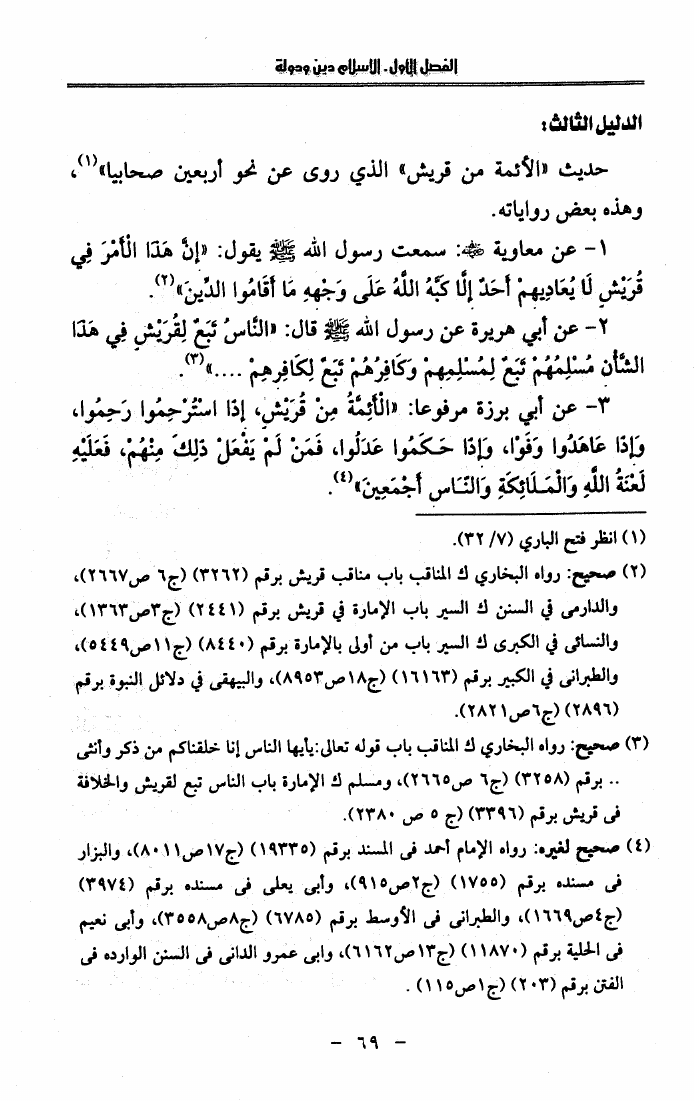 الفصل الأول - الإسلام دين ودولة
الدليل الثالث:
حديث «الأئمة من قريش» الذي روى عن نحو أربعين صحابيا»(١)،
وهذه بعض رواياته.
١- عن معاوية ﵁: سمعت رسول الله ﷺ يقول: «إِنَّ هَذَا الْأَمْرَ فِي
قُرَيْشٍ لَا يُعَادِيهِمْ أَحَدٌ إِلَّا كَبَّهُ اللَّهُ عَلَى وَجْهِهِ مَا أَقَامُوا الدِّينَ»(٢).
٢- عن أبي هريرة عن رسول الله ﷺ قال: «النَّاسُ تَبَعٌ لِقُرَيْشٍ فِي هَذَا
الشَّأْنِ مُسْلِمُهُمْ تَبَعٌ لِمُسْلِمِهِمْ وَكَافِرُهُمْ تَبَعٌ لِكَافِرِهِمْ ....»(٣).
٣- عن أبي برزة مرفوعا: «الْأَئِمَّةُ مِنْ قُرَيْشٍ، إِذَا اسْتُرْحِمُوا رَحِمُوا،
وَإِذَا عَاهَدُوا وَفَوْا، وَإِذَا حَكَمُوا عَدَلُوا، فَمَنْ لَمْ يَفْعَلْ ذَلِكَ مِنْهُمْ، فَعَلَيْهِ
لَعْنَةُ اللَّهِ وَالْمَلَائِكَةِ وَالنَّاسِ أَجْمَعِينَ»(٤).
(١) انظر فتح الباري (٧/ ٣٢).
(٢) صحيح: رواه البخاري ك المناقب باب مناقب قريش برقم (٣٢٦٢) (ج٦ ص٢٦٦٧)،
والدارمى في السنن ك السير باب الإمارة في قريش برقم (٢٤٤١) (ج٣ص١٣٦٣)،
والنسائى في الكبرى ك السير باب من أولى بالإمارة برقم (٨٤٤٠) (ج١١ص٥٤٤٩)،
والطبرانى في الكبير برقم (١٦١٦٣) (ج١٨ص٨٩٥٣)، والبيهقى في دلائل النبوة برقم
(٢٨٩٦) (ج٦ص٢٨٢١).
(٣) صحيح: رواه البخاري ك المناقب باب قوله تعالى:يأيها الناس إنا خلقناكم من ذكر وأنثى
.. برقم (٣٢٥٨) (ج٦ ص٢٦٦٥)، ومسلم ك الإمارة باب الناس تبع لقريش والخلافة
فى قريش برقم (٣٣٩٦) (ج ٥ ص ٢٣٨٠).
(٤) صحيح لغيره: رواه الإمام أحمد فى المسند برقم (١٩٣٣٥) (ج١٧ص٨٠١١)، والبزار
فى مسنده برقم (١٧٥٥) (ج٢ص٩١٥)، وأبى يعلى فى مسنده برقم (٣٩٧٤)
(ج٤ص١٦٦٩)، والطبرانى فى الأوسط برقم (٦٧٨٥) (ج٨ص٣٥٥٨)، وأبى نعيم
فى الحلية برقم (١١٨٧٠) (ج١٣ص٦١٦٢)، وابى عمرو الدانى فى السنن الوارده فى
الفتن برقم (٢٠٣) (ج١ص١١٥) .
- ٦٩ -